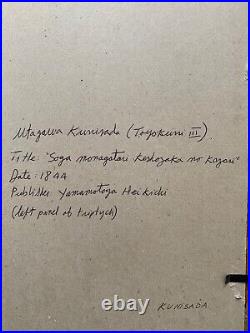 Utagawa Kunisada (Toyokuni III)
Title: "Soga monogatari Keshozaka no Kozori"
Date: 1844
Publisher Yamamotoya Heikichi
(left panel of triptych)
KUNISADA